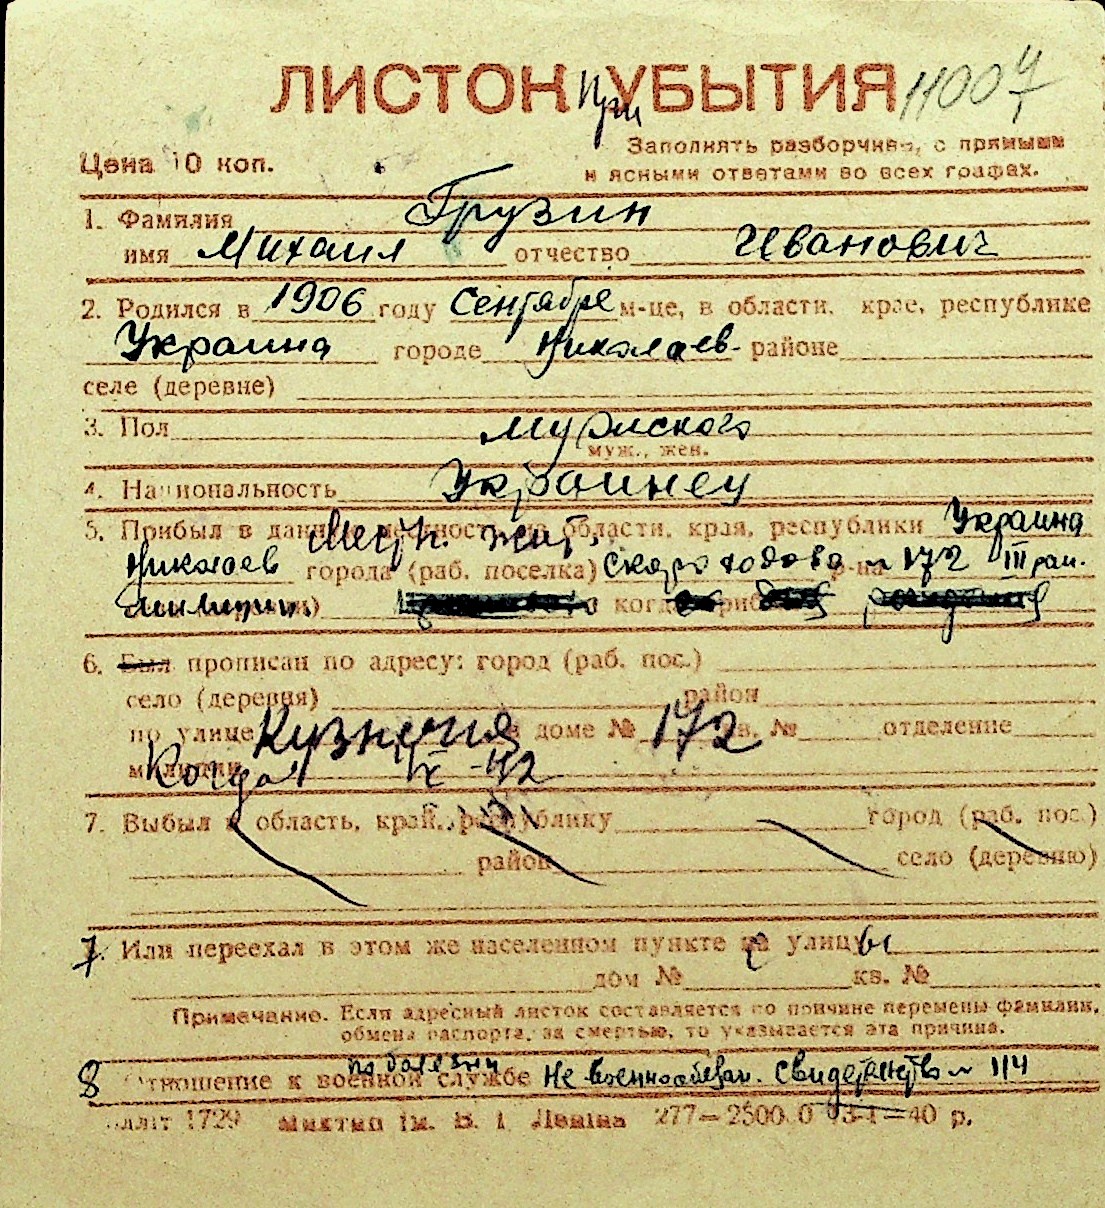 ЛИСТОК при УБЫТИЯ 11007
Цена 10 коп.
Заполнять разборчиво, с прямыми
и ясными ответами во всех графах.
1. Фамилия Грузин
имя Михаил отчество Иванович
2. Родился в 1906 году Сентябре м-це, в области, крае, республике
Украина городе Николаев районе
селе (деревне)
3. Пол мужского
муж., жен.
4. Национальность Украинец
5. Прибыл в данную местность из области, края, республики Украина
Местн. жит.
Николаев города (раб. поселка) Скороходова № 172 III рай.
милиции когда
6. Был прописан по адресу: город (раб. пос.)
село (деревня) район
по улице Кузнечная в доме № 172 кв. № отделение
милиции Когда IX-42
7. Выбыл в область, край, республику город (раб. пос.)
район село (деревню)
7. Или переехал в этом же населенном пункте с улицы
дом № кв. №
Примечание. Если адресный листок составляется по причине перемены фамилии,
обмена паспорта, за смертью, то указывается эта причина.
по болезни
8 Отношение к военной службе Не военнообязан. Свидетельство № 114
1729 ім. В. І. Леніна 277—2500.0 3-1=40 р.